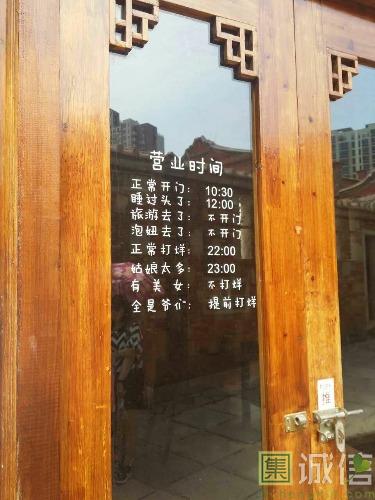 营业时间
正常开门： 10:30
睡过头了： 12:00
旅游去了： 不开门
泡妞去了： 不开门
正常打烊： 22:00
姑娘太多： 23:00
有美女： 不打烊
全是爷们： 提前打烊
推
集 诚信